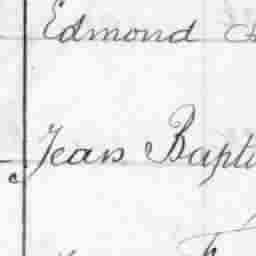 Edmond
Jean Bapti